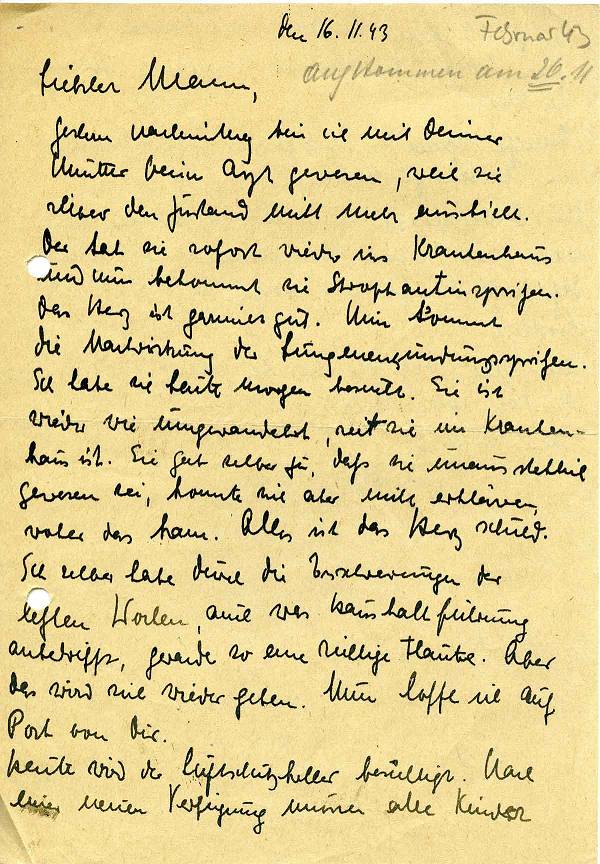 den 16.11.43
Februar 43
angekommen am 26.11
Liebster Mann,
gestern nachmittag bin ich mit Deiner
Mutter beim Arzt gewesen, weil sie
selber den Zustand nicht mehr aushielt.
Der hat sie sofort wieder ins Krankenhaus
und nun bekommt sie Strophantinspritzen.
Das Herz ist garnicht gut. Nun kommt
die Nachwirkung der Lungenentzündungsspritzen.
Ich habe sie heute morgen besucht. Sie ist
wieder wie umgewandelt, seit sie im Kranken-
haus ist. Sie gibt selber zu, daß sie unausstehlich
gewesen sei, konnte sich aber nicht erklären,
woher das kam. Alles ist das Herz schuld.
Ich selber habe durch die Erschwerungen der
letzten Wochen, auch was Haushaltführung
anbetrifft, gerade so eine
Aber
das wird sich wieder geben. Nun hoffe ich auf
Post von Dir.
Heute wird der Luftschutzkeller besichtigt. Nach
einer neuen Verfügung müssen alle Kinder